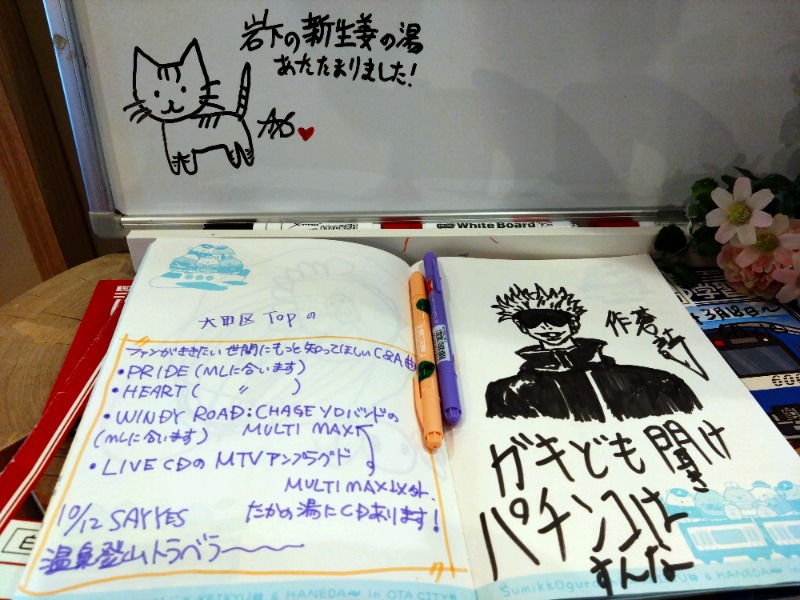 岩下の新生姜の湯
あたたまりました!
White Board
大田区 Topの
ファンがききたい 世間にもっと知ってほしい C&A曲
・PRIDE(MLに合います)
・HEART( 〃 )
・WINDY ROAD:CHAGEソロバンドの
(MLに合います) MULTI MAX
・LIVE CDの MTVアンプラグド
MULTI MAX以外.
10/12 SAYYES たかの湯にCDあります!
温泉登山トラベラー〜〜
作者
ガキども聞け
パチンコは
すんな
3月18日〜
600
Sumikkogura
& HANEDA
in OTA CITY